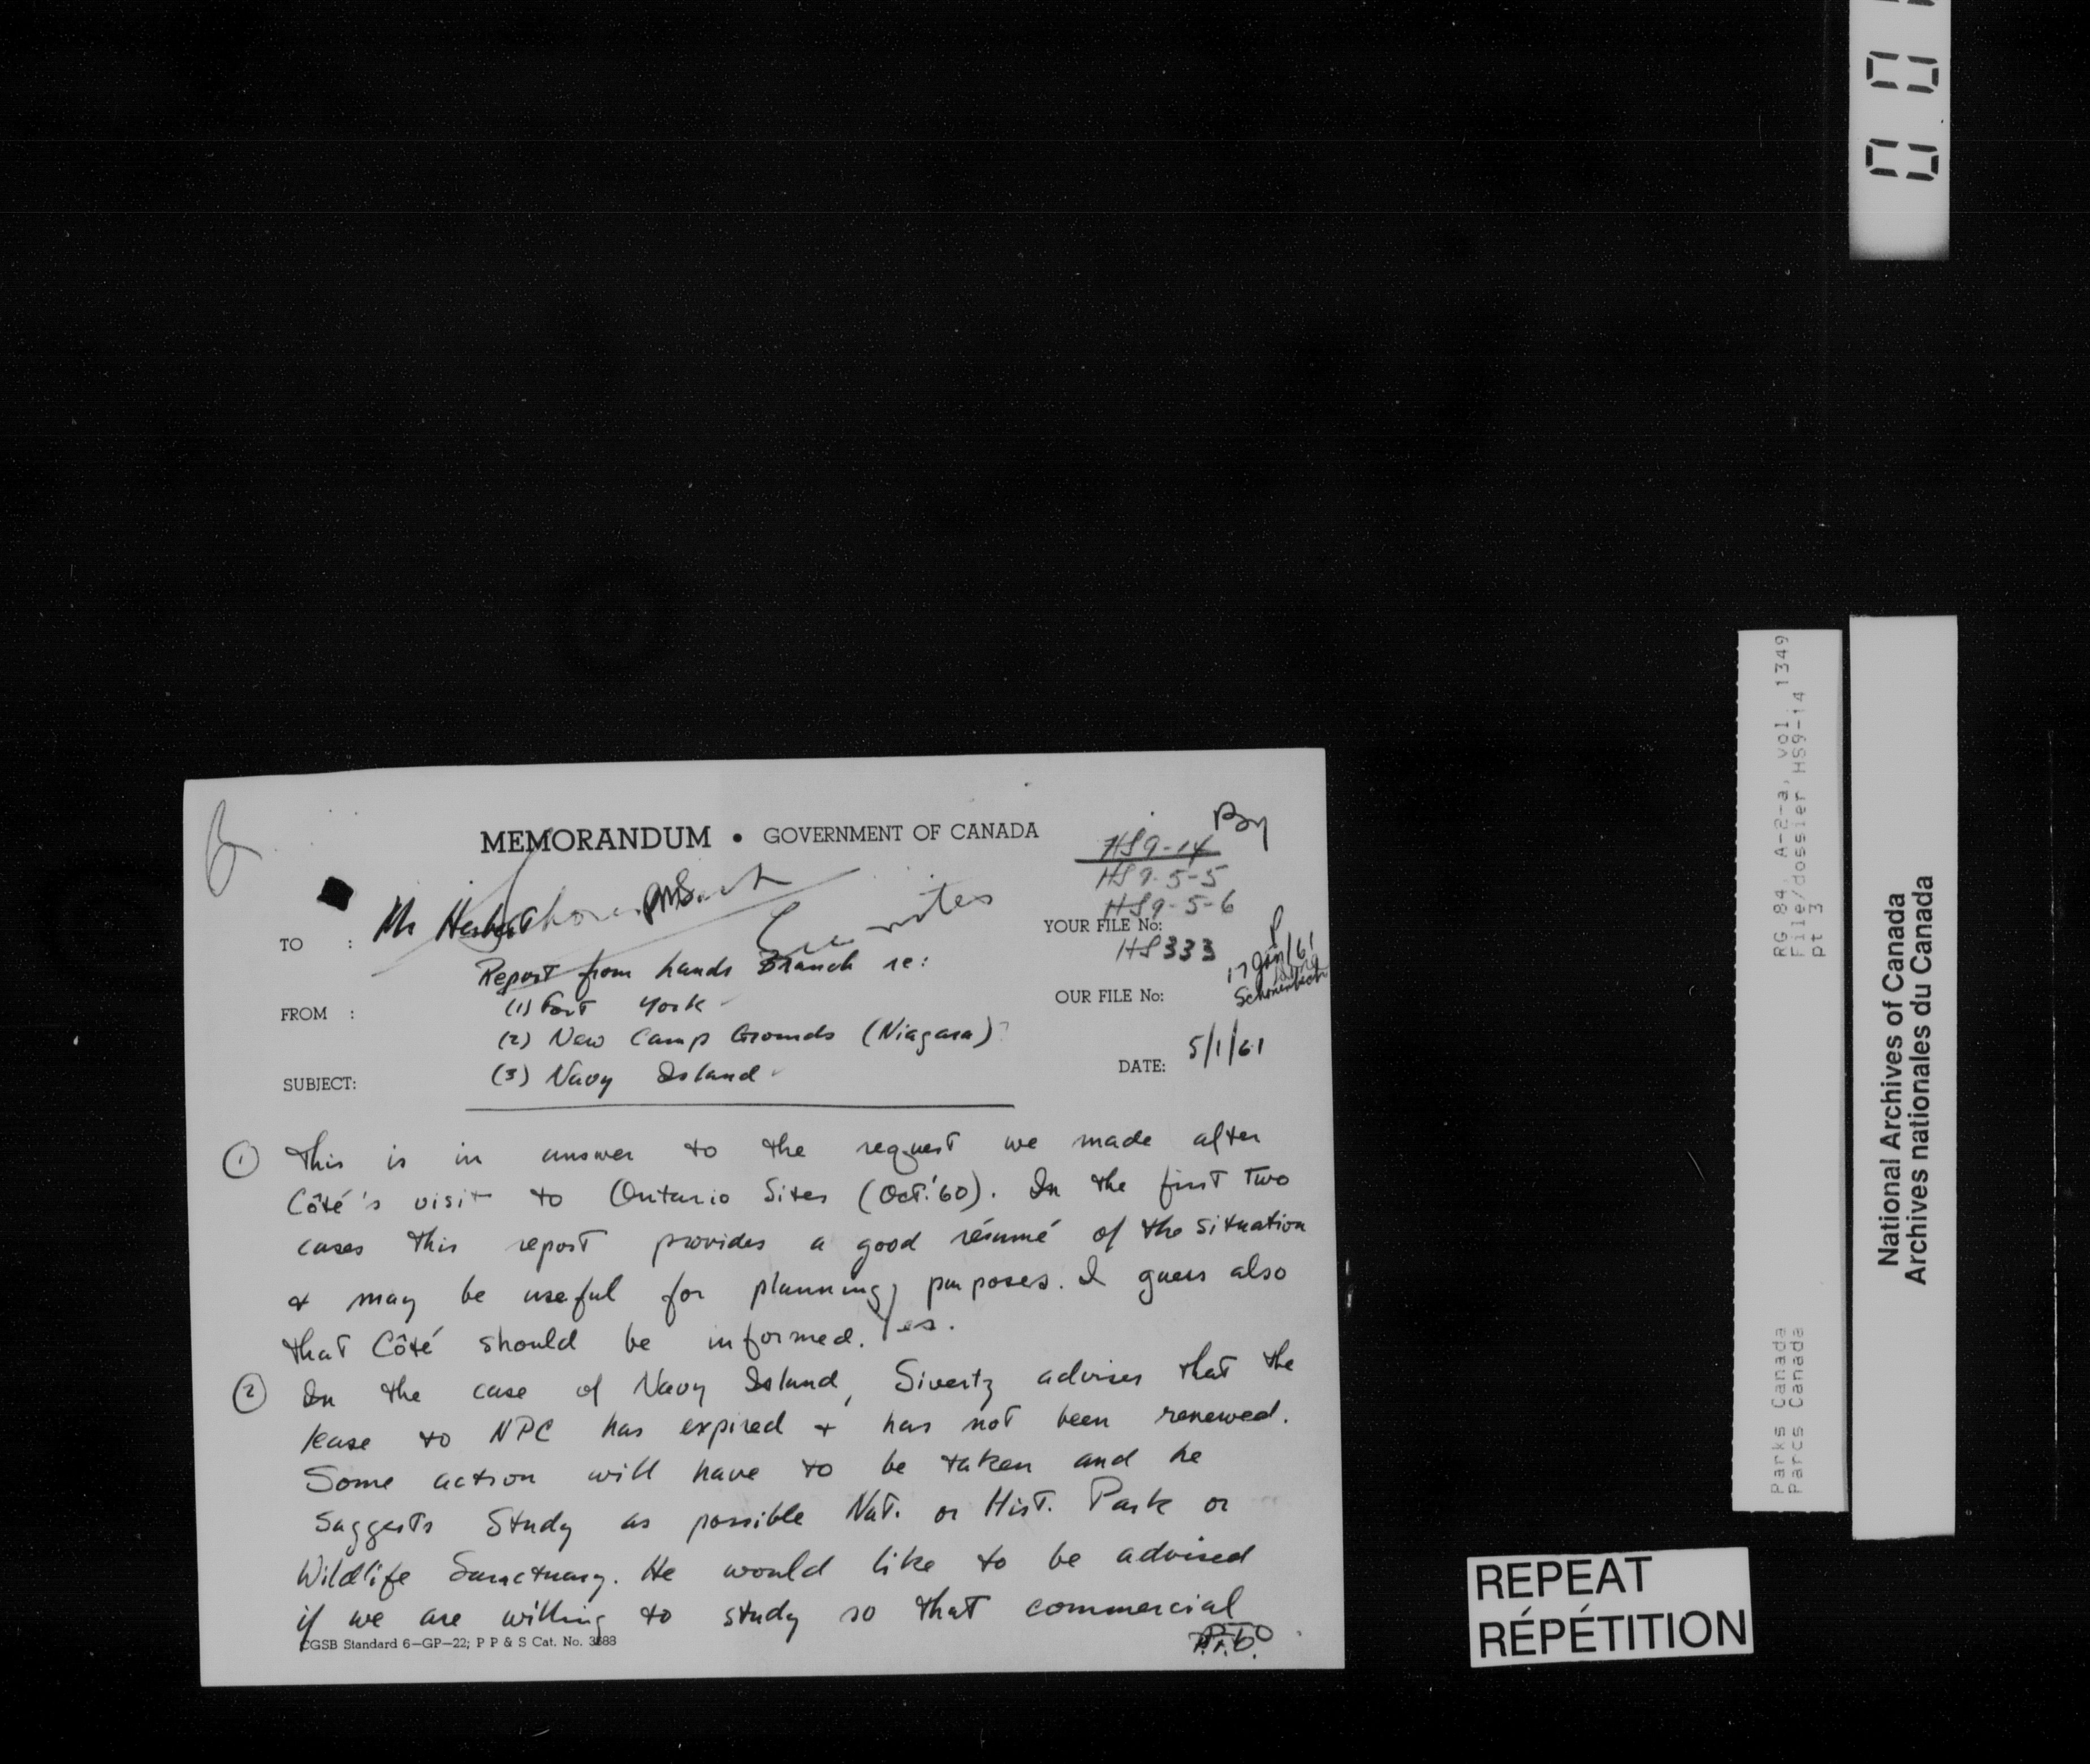 MEMORANDUM • GOVERNMENT OF CANADA
HS9-14
HS9-5-5
HS9-5-6
TO : Mr Herbert
See notes
YOUR FILE No:
HS333
Report from Lands Branch re:
17 Jan/61
FROM :
(1) Fort York
OUR FILE No:
(2) New Camp Grounds (Niagara)?
DATE: 5/1/61
SUBJECT:
(3) Navy Island
① This is in answer to the request we made after
Côté's visit to Ontario Sites (Oct.'60). In the first two
cases this report provides a good résumé of the situation
& may be useful for planning purposes. I guess also
that Côté should be informed. Yes.
② In the case of Navy Island, Sivertz advises that the
lease to NPC has expired & has not been renewed.
Some action will have to be taken and he
suggests study as possible Nat. or Hist. Park or
Wildlife Sanctuary. He would like to be advised
if we are willing to study so that commercial
CGSB Standard 6—GP—22; P P & S Cat. No. 3688
P.T.O.
RG 84, A-2-a, vol. 1349
File/dossier HS9-14
pt 3
Parks Canada
Parcs Canada
National Archives of Canada
Archives nationales du Canada
REPEAT
RÉPÉTITION